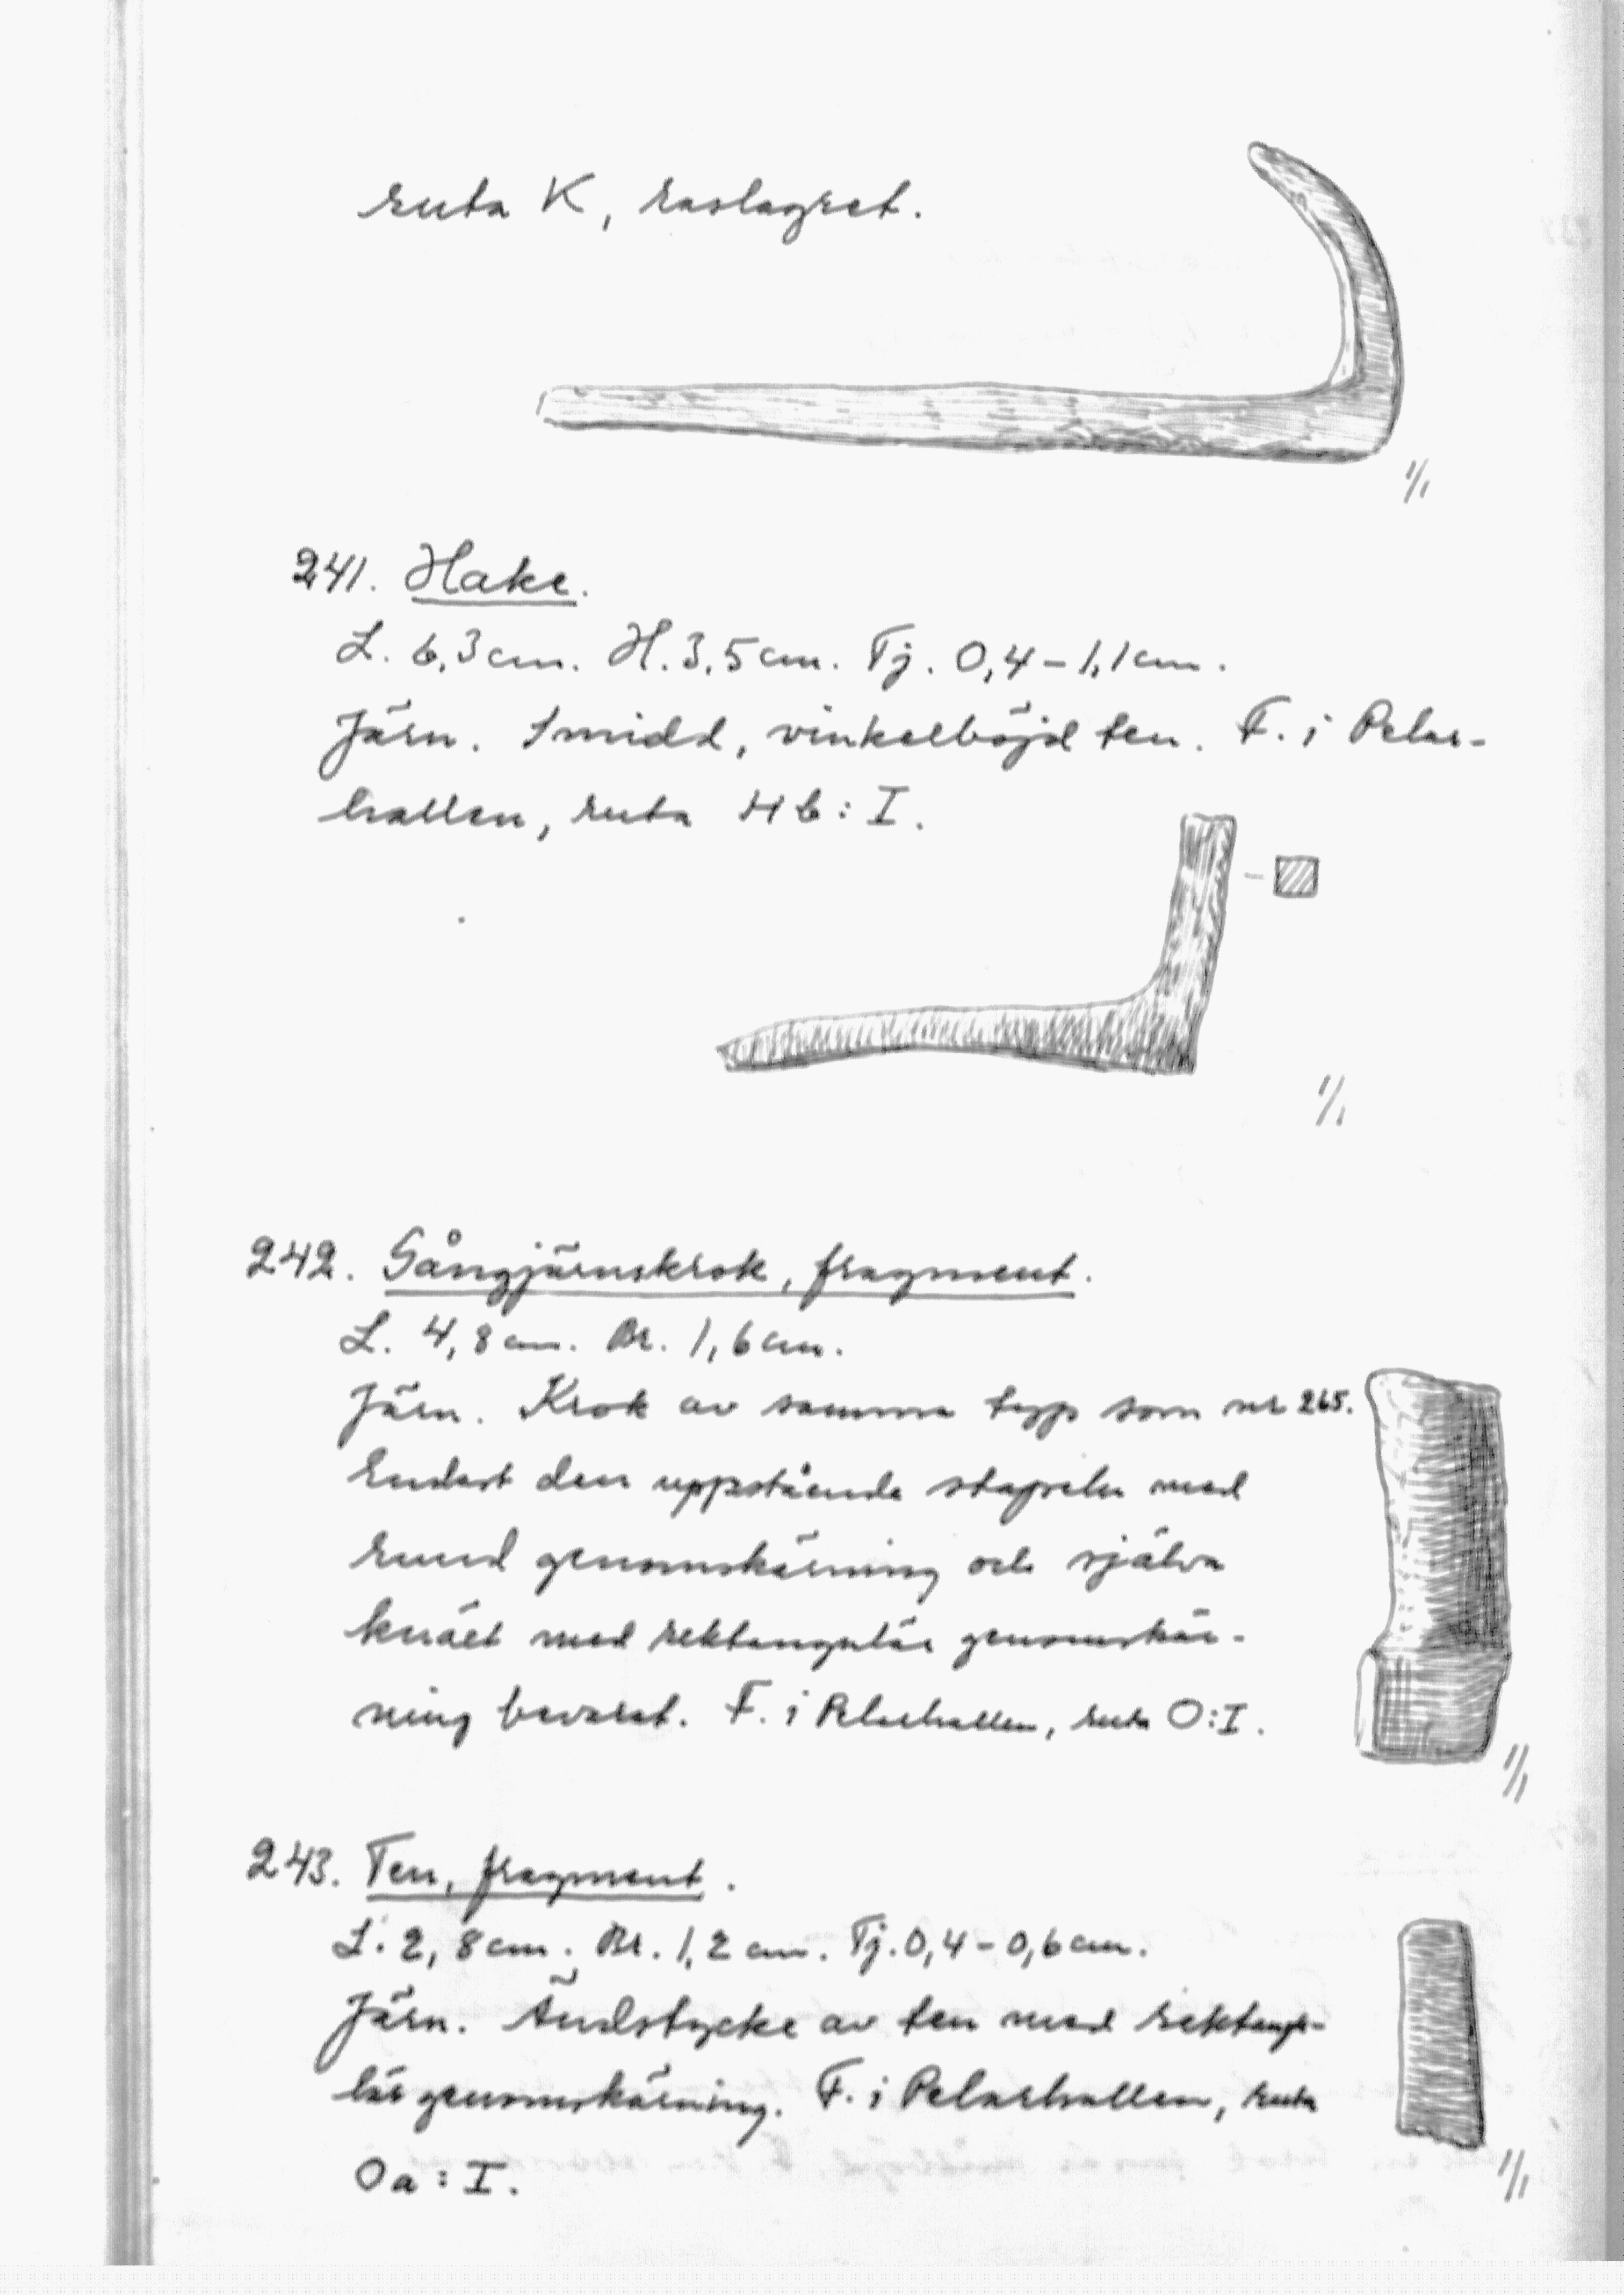 ruta K, raslagret.
1/1
241. Hake.
L. 6,3 cm. H. 3,5 cm. Tj. 0,4-1,1 cm.
Järn. Smidd, vinkelböjd ten. F. i Pelar-
hallen, ruta Hb: I.
1/1
242. Gångjärnskrok, fragment.
L. 4,8 cm. Br. 1,6 cm.
Järn. Krok av samma typ som nr 265.
Endast den uppstående stapeln med
rund genomskärning och själva
knäet med rektangulär genomskär-
ning bevarat. F. i Pelarhallen, ruta O:I.
1/1
243. Ten, fragment.
L. 2,8 cm. Br. 1,2 cm. Tj. 0,4-0,6 cm.
Järn. Ändstycke av ten med rektangu-
lär genomskärning. F. i Pelarhallen, ruta
Oa: I.
1/1